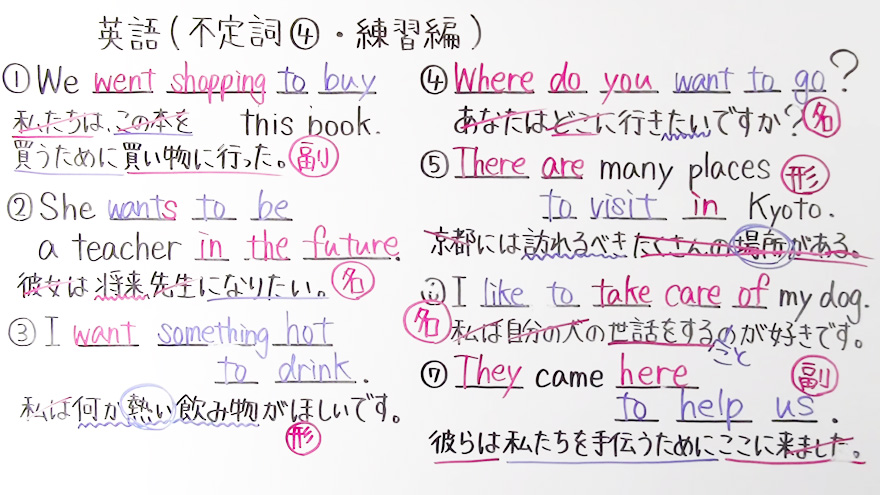 英語(不定詞④・練習編)
①We went shopping to buy
this book.
私たちは、この本を
買うために買い物に行った。副
②She wants to be
a teacher in the future.
彼女は将来先生になりたい。名
③I want something hot
to drink.
私は何か熱い飲み物がほしいです。
形
④Where do you want to go?
あなたはどこに行きたいですか?名
⑤There are many places 形
to visit in Kyoto.
京都には訪れるべきたくさんの場所がある。
I like to take care of my dog.
名 私は自分の犬の世話をするのが好きです。
こと
⑦They came here 副
to help us.
彼らは私たちを手伝うためにここに来ました。